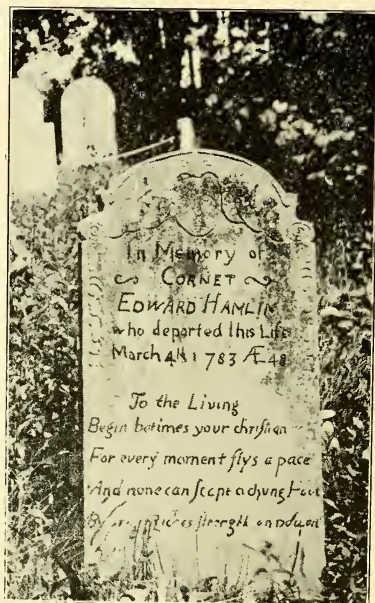 In Memory of
CORNET
EDWARD HAMLIN
who departed this Life
March 4th 1783 Æ 48
To the Living
Begin betimes your christian
For every moment flys a pace
And none can scape
strength